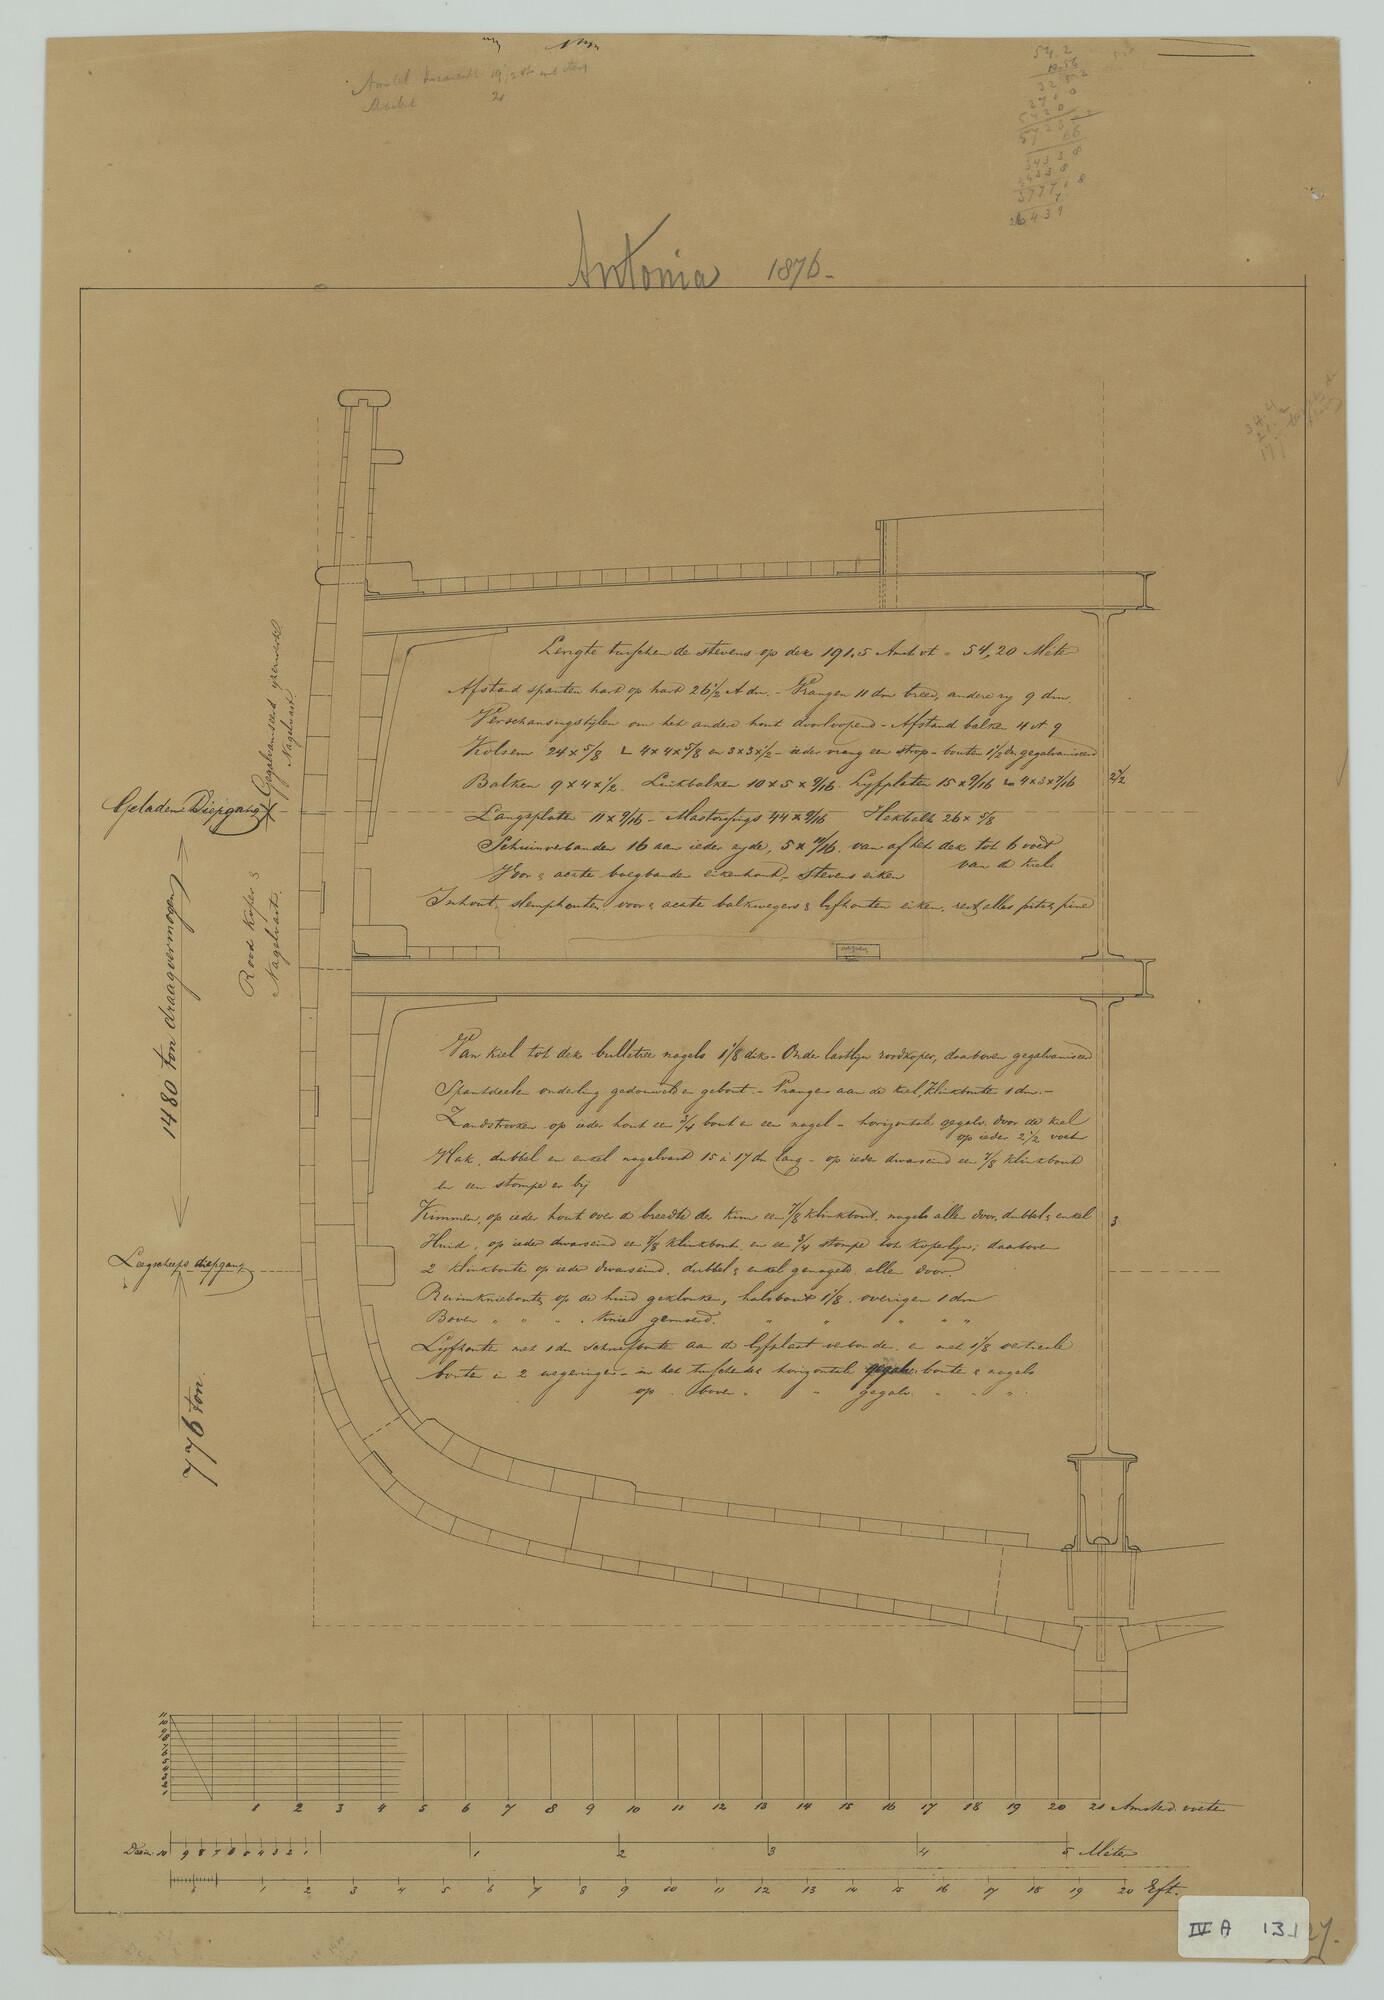 Antonia 1876
54.2
Lengte tusschen de stevens op dek 191.5 Amst vt = 54,20 Meter
Afstand spanten hart op hart 26 1/2 A dm. - Vrangen 11 dm breed, andere 9 dm.
Verschansingstijlen om het andere hout doorloopend - Afstand balken 4 vt 9
Kolsem 24 x 5/8 4 x 4 x 5/8 en 3 x 3 x 1/2 - ieder vrang een strop - bouten 1 1/2 dm gegalvaniseerd
Balken 9 x 4 x 1/2. Luikbalken 10 x 5 x 9/16. Lyfplaten 15 x 9/16 4 x 3 x 7/16
2 1/2
Geladen Diepgang
Langsplaten 11 x 9/16 - 44 x 9/16 Hekbalk 26 x 5/8
Schuinverbanden 16 aan ieder zyde, 5 x 11/16. van af het dek tot 6 voet
van de kiel
Voor & achter boegbanden eikenhout - Stevens eiken
Inhout, slemphouten, voor & achter balkwegers & lyfhouten eiken. rest alles pitch pine
Gegalvaniseerd yzerwerk
Nagelvast
Rood koper &
Nagelvast.
1480 ton draagvermogen
Van kiel tot dek bulletrie nagels 1 1/8 dik - Onder lastlyn roodkoper, daarboven gegalvaniseerd
Spantdeelen onderling gedouveld en gebout - Vrangen aan de kiel, klinkbouten 1 dm. -
Zandstrooken op ieder hout een 3/4 bout en een nagel - horizontale gegalv. door de kiel
op ieder 2 1/2 voet
Vlak, dubbel en enkel nagelvast 15 à 17 dm lang - op ieder dwarseind een 7/8 klinkbout
en een stompe er by
Kimmen, op ieder hout over de breedte der kim een 7/8 klinkbout, nagels allen door, dubbel & enkel
3
Huid, op ieder dwarseind een 7/8 klinkbout en een 3/4 stompe tot koperlyn; daarboven
2 klinkbouten op ieder dwarseind. dubbel & enkel genageld allen door.
Leegscheeps diepgang
Ruimkniebouten op de huid geklonken, halsbout 1 1/8. overigen 1 dm
Boven " " " knie gemoerd. " " " " "
Lyfhouten met 1 dm schroefbouten aan de lyfplaat verbonden en met 1 1/8 verticale
bouten in 2 wegeringen - in het tusschendek horizontale bouten & nagels
op " boven " " gegalv. " " "
776 ton.
11
10
9
8
7
6
5
4
3
2
1
1 2 3 4 5 6 7 8 9 10 11 12 13 14 15 16 17 18 19 20 21 Amsterd. voeten
Decim. 10 9 8 7 6 5 4 3 2 1 1 2 3 4 5 Meter
6 1 2 3 4 5 6 7 8 9 10 11 12 13 14 15 16 17 18 19 20 Eft.
IV A 13.127.